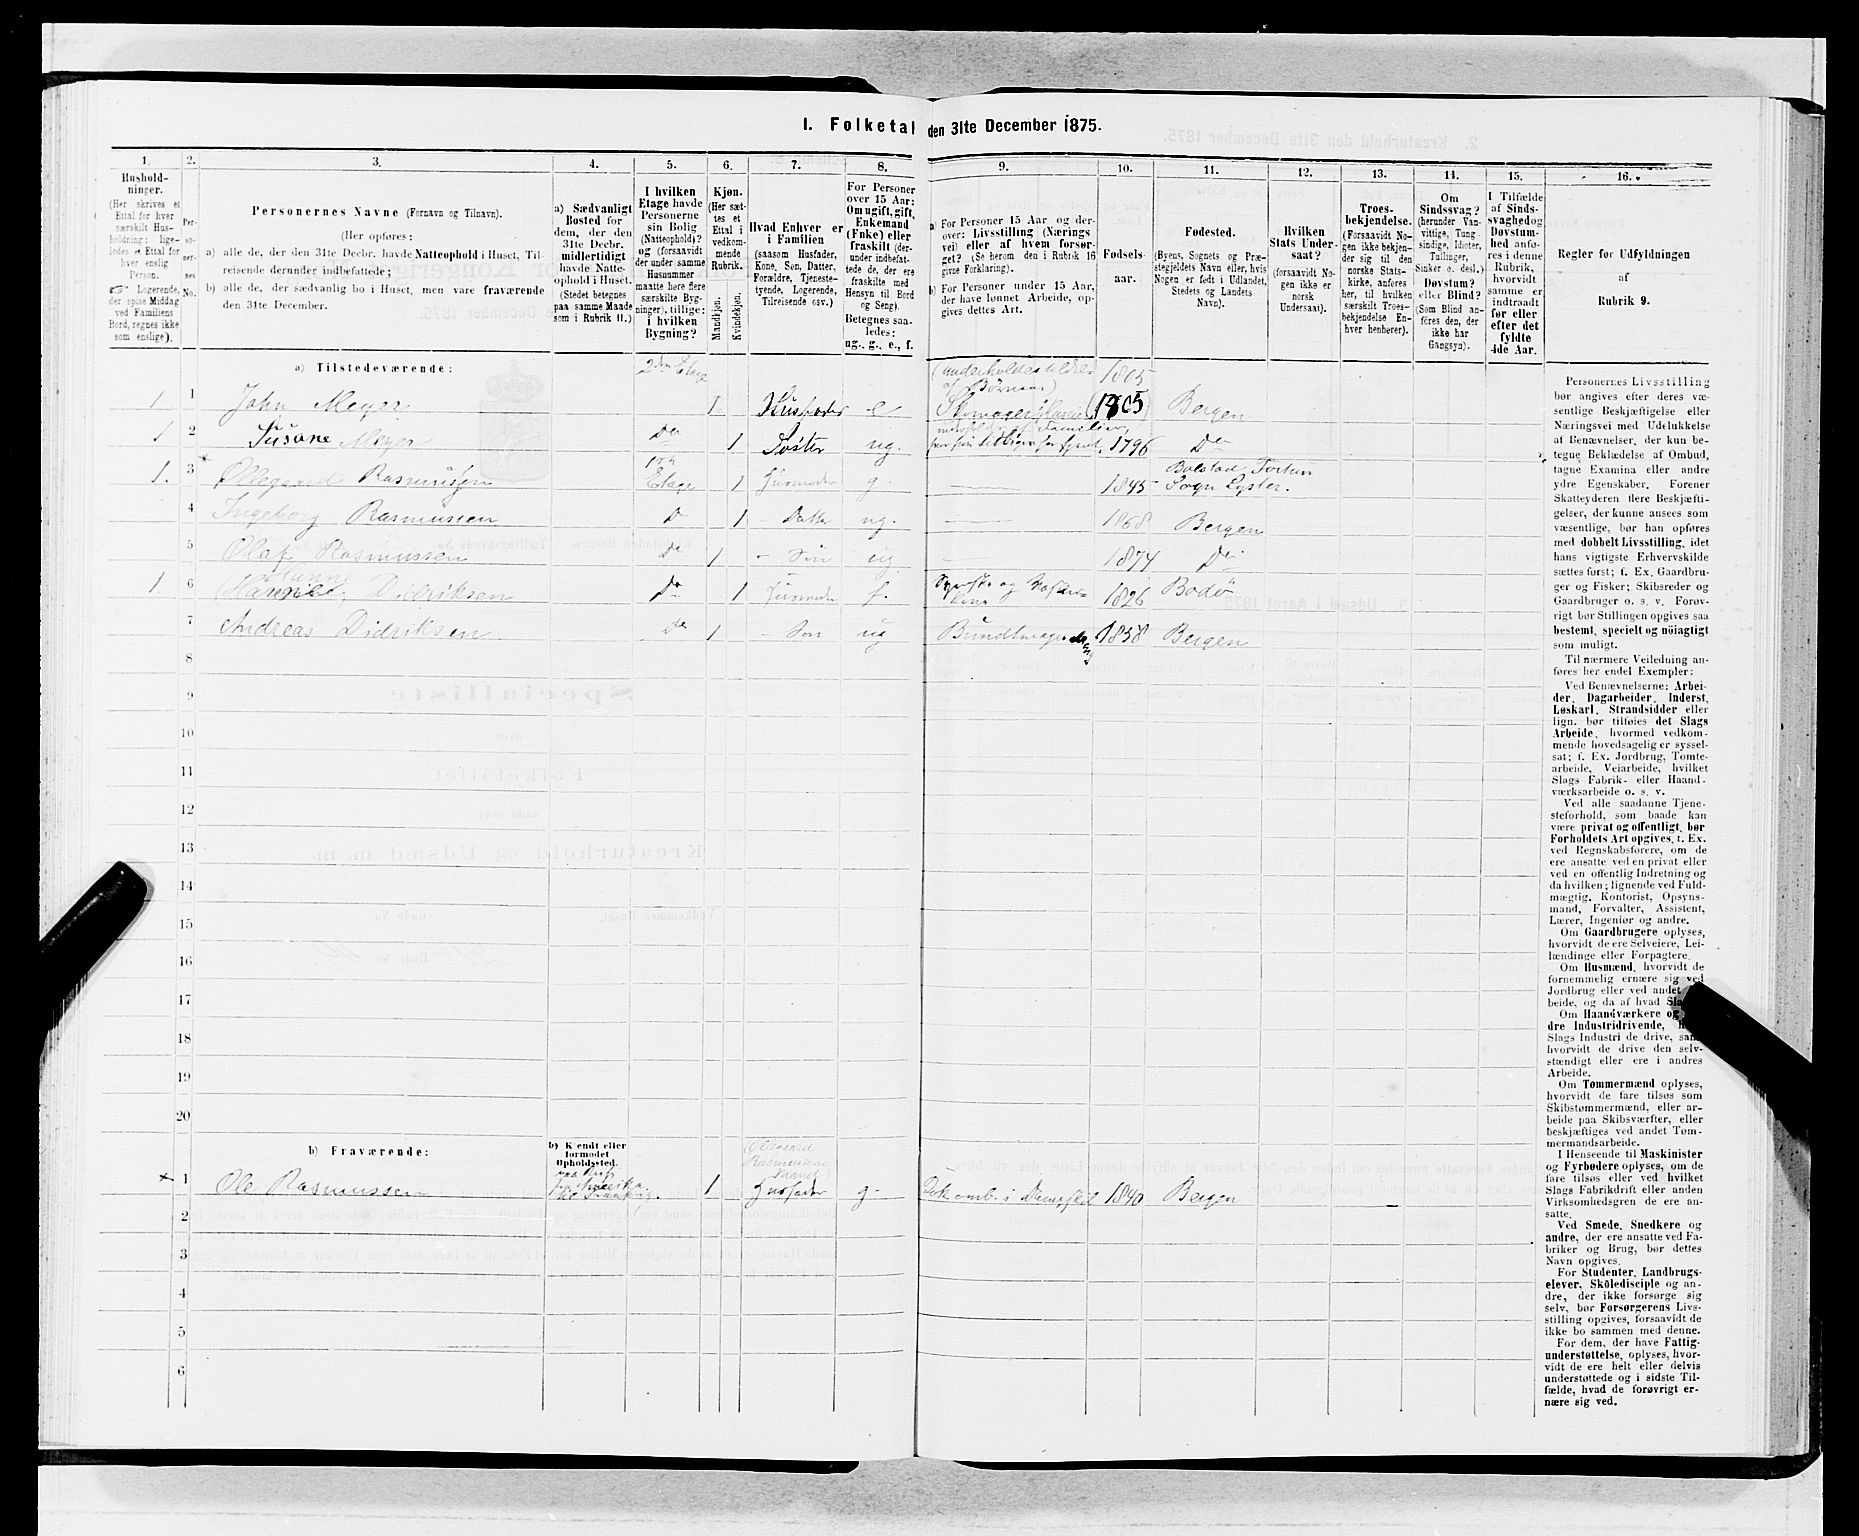 I. Folketal den 31te December 1875.
1.
2.
3.
4.
5.
6.
7.
8.
9.
10.
11.
12.
13.
14.
15.
16.
Hushold-
ninger.
(Her skrives et
Ettal for hver
særskilt Hus-
holdning; lige-
ledes et Ettal for
hver enslig
Person.
Logerende,
der spise Middag
ved Familiens
Bord, regnes ikke
som enslige).
Per-
so-
ner-
nes
No.
Personernes Navne (Fornavn og Tilnavn).
(Her opføres:
a) alle de, der den 31te Decbr. havde Natteophold i Huset, Til-
reisende derunder indbefattede;
b) alle de, der sædvanlig bo i Huset, men vare fraværende
den 31te December.
a) Sædvanligt
Bosted for
dem, der den
31te Decbr.
midlertidigt
havde Natte-
ophold i Huset.
(Stedet betegnes
paa samme Maade
som i Rubrik 11.)
I hvilken
Etage havde
Personerne
sin Bolig
(Natteophold)?
og (forsaavidt
der under samme
Husnummer
maatte høre flere
særskilte Byg-
ninger), tillige:
i hvilken
Bygning?
Kjøn.
(Her sæt-
tes et
Ettal i
vedkom-
mende
Rubrik.
Mandkjøn.
Kvindekjøn.
Hvad Enhver er
i Familien
(saasom Husfader,
Kone, Søn, Datter,
Forældre, Tjeneste-
tyende, Logerende,
Tilreisende osv.)
For Personer
over 15 Aar:
Om ugift, gift,
Enkemand
(Enke) eller
fraskilt (der-
under indbefat-
tede de, der ere
fraskilte med
Hensyn til Bord
og Seng).
Betegnes saa-
ledes:
ug., g., e., f.
a) For Personer 15 Aar og der-
over: Livsstilling (Nærings
vei) eller af hvem forsør-
get? (Se herom den i Rubrik 16
givne Forklaring).
b) For Personer under 15 Aar,
der have lønnet Arbeide, op-
gives dettes Art.
Fødsels-
aar.
Fødested.
(Byens, Sognets og Præ-
stegjeldets Navn eller, hvis
Nogen er født i Udlandet,
Stedets og Landets
Navn).
Hvilken
Stats Under-
saat?
(forsaavidt No-
gen ikke er
norsk
Undersaat).
Troes-
bekjendelse.
(Forsaavidt No-
gen ikke bekjen-
der sig til den
norske Stats-
kirke, anføres
her, til hvilken
særskilt Troes-
bekjendelse En-
hver henhører).
Om
Sindssvag?
(herunder Van-
vittige, Tung-
sindige, Idioter,
Tullinger,
Sinker o. desl.)
Døvstum?
eller Blind?
(Som Blind an-
føres den, der
ikke har
Gangsyn).
I Tilfælde
af Sinds-
svaghed og
Døvstum-
hed anfø-
res i denne
Rubrik,
hvorvidt
samme er
indtraadt
før eller
efter det
fyldte
4de Aar.
Regler for Udfyldningen
af
Rubrik 9.
a) Tilstedeværende:
2den Etage
(underholdes tildels
af Børnene)
1805
1 1 John Meyer 1 Husfader e Skomager (1805) Bergen
1 2 Susane Meyer Do 1 Søster ug. 1796 Do
1. 3 Ollegaard Rasmussen 1ste Etage 1 Husmoder g. 1845 Bolstad Fortun
Sogn Lyster.
4 Ingeborg Rasmussen Do 1 - Datter ug. 1868 Bergen
5 Olaf Rasmussen Do 1 - Søn ug 1874 Do
1. 6 Hanne Didriksen Do 1 Husmoder f. 1826 Bodø
7 Andreas Didriksen Do 1 - Søn ug Bundtmager 1858 Bergen
8
9
10
11
12
13
14
15
16
17
18
19
20
b) Fraværende:
b) Kjendt eller
formodet
Opholdssted.
Ollegaard
Rasmussens
Mand
1 Ole Rasmussen paa Reise
fra Amerika
til Frankrig. 1 Husfader g. 1840 Bergen
2
3
4
5
6
Personernes Livsstilling
bør angives efter deres væ-
sentlige Beskjæftigelse eller
Næringsvei med Udelukkelse
af Benævnelser, der kun be-
tegne Beklædelse af Ombud,
tagne Examina eller andre
ydre Egenskaber. Forener
Skatteyderen flere Beskjæfti-
gelser, der kunne ansees som
væsentlige, bør han opføres
med dobbelt Livsstilling, idet
hans vigtigste Erhvervskilde
sættes først; f. Ex. Gaardbru-
ger og Fisker; Skibsreder og
Gaardbruger o. s. v. Forøv-
rigt bør Stillingen opgives saa
bestemt, specielt og nöiagtigt
som muligt.
Til nærmere Veiledning an-
føres her endel Exempler:
Ved Benævnelserne: Arbei-
der, Dagarbeider, Inderst,
Løskarl, Strandsidder eller
lign. bør tilføies det Slags
Arbeide, hvormed vedkom-
mende hovedsagelig er syssel-
sat; f. Ex. Jordbrug, Tomte-
arbeide, Veiarbeide, hvilket
Slags Fabrik- eller Haand-
værksarbeide o. s. v.
Ved alle saadanne Tjene-
steforhold, som baade kan
være privat og offentligt, bør
Forholdets Art opgives, t. Ex.
ved Regnskabsførere, om de
ere ansatte ved en privat eller
ved en offentlig Indretning og
da hvilken; lignende ved Fuld-
mægtig, Kontorist, Opsyns-
mand, Forvalter, Assistent,
Lærer, Ingeniør og andre.
Om Gaardbrugere oplyses,
hvorvidt de ere Selveiere, Lei-
lændinge eller Forpagtere.
Om Husmænd, hvorvidt de
fornemmelig ernære sig ved
Jordbrug eller ved andet
beide, og da af hvad
Om Haandværkere og
dre Industridrivende,
Slags Industri de drive, samt
hvorvidt de drive den selv-
stændigt eller ere i andres
Arbeide.
Om Tømmermænd oplyses,
hvorvidt de fare tilsøs som
Skibstømmermænd, eller ar-
beide paa Skibsværfter, eller
beskjæftiges ved andet Tøm-
mermandsarbeide.
I Henseende til Maskinister
og Fyrbødere oplyses, om de
fare tilsøs eller ved hvilket
Slags Fabrikdrift eller anden
Virksomhedsgren de ere an-
satte.
Ved Smede, Snedkere og
andre, der ere ansatte ved Fa-
briker og Brug, bør dettes
Navn opgives.
For Studenter, Landbrugs-
elever, Skoledisciple og an-
dre, der ikke forsørge sig
selv, bør Forsørgerens Livs-
stilling opgives, forsaavidt de
ikke bo sammen med denne.
For dem, der have Fattig-
understøttelse, oplyses, hvor-
vidt de ere helt eller delvis
understøttede og i sidste Til-
fælde, hvad de forøvrigt er-
nære sig ved.